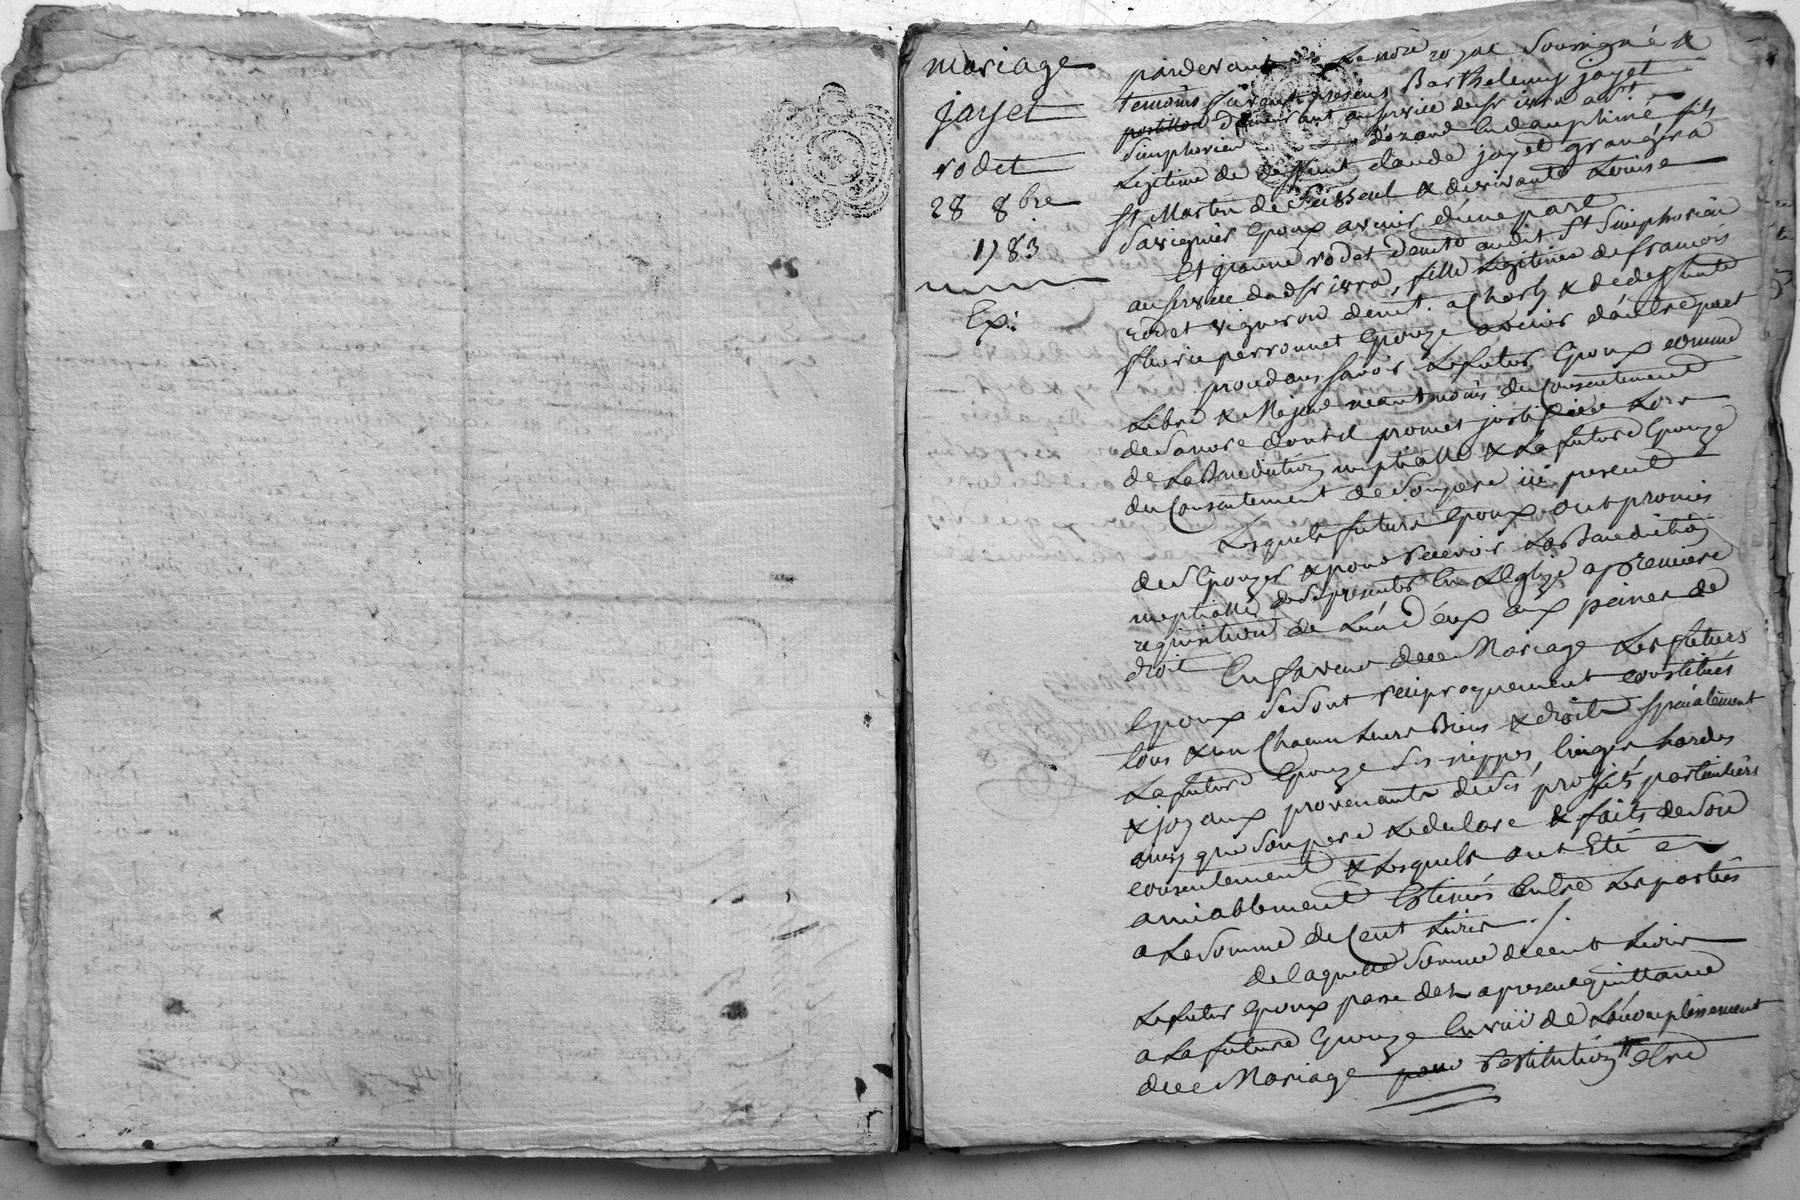 mariage
jayet
rodet
28 8bre
1783
Exp:
pardevant Le nore royal Soussigné &
temoins presens Barthelemy jayet
postillon demeurant au service de sr
Simphorien dozond En dauphiné fils
Legitime de deffunt claude jayet granger a
st Martin de & de vivante Louise
Savignier Epoux avenir d'une part
Et jeanne rodet demte audit st Simphorien
au service dud sr fille Legitime de francois
rodet vigneron demt. a Charly & de deffunte
fleurie perronnet Epouze avenir d'autre part
procedans savoir Le futur Epoux comme
Libre & Majeur neantmoins du Consentement
de Sa mere dont il promet justifier Lors
de La Benediction nuptialle & La future Epouze
du Consentement de Son pere ici present
Lesquels futurs Epoux ont promis
de S'Epouzer & pour recevoir La Benediction
nuptialle de Se presenter En L'Eglize a premiere
requisition de L'un d'eux aux peines de
droit En faveur de ce Mariage Les futurs
Epoux Se Sont reciproquement constitués
tous & un Chacun Leurs Biens & droits specialement
La future Epouze Ses nippes, linges hardes
& joyaux provenants de Ses proffits particuliers
ainsy que Son pere Le declare & faits de Son
consentement & Lesquels ont Eté
amiablement Estimés Entre Les parties
a La Somme de Cent Livres
de laquelle Somme de cent Livres
Le futur Epoux passe des a present quittance
a La future Epouze En vuë de L'accomplissement
de ce Mariage pour restitution Etre